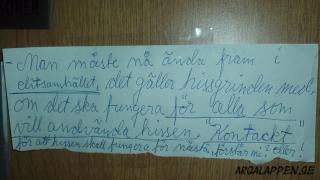 - Man måste nå ända fram i
elitsamhället, det gäller hissgrinden med,
om det ska fungera för alla som
vill andvända hissen. "Kontackt"
för att hissen skall fungera för nästa, förstår ni? eller!
ARGALAPPEN.SE